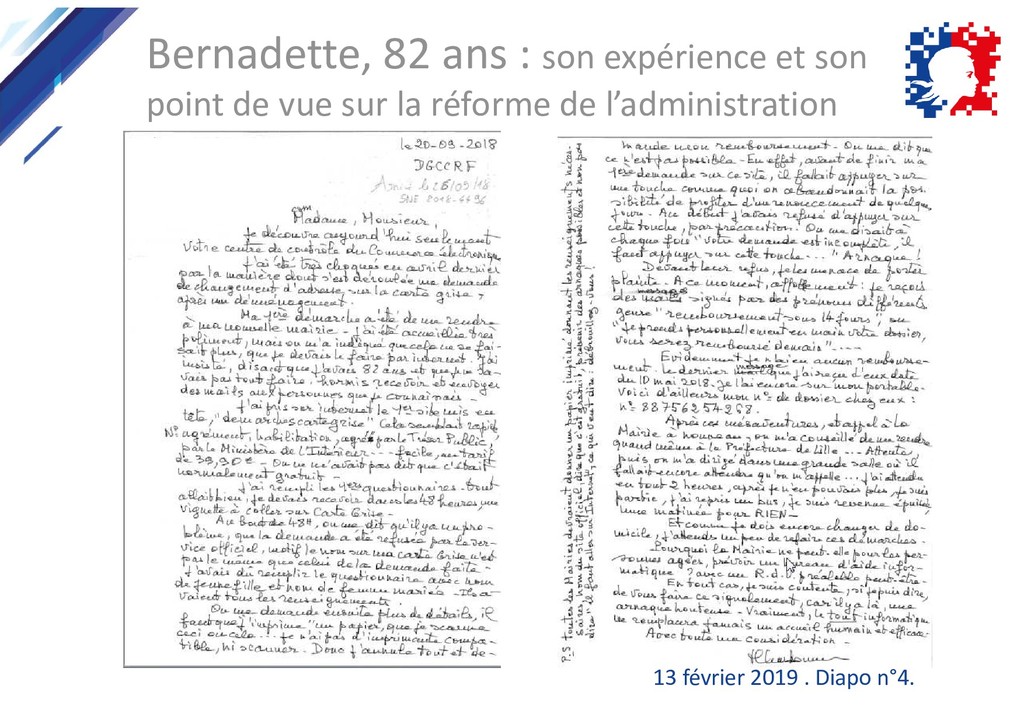 Bernadette, 82 ans : son expérience et son
point de vue sur la réforme de l’administration
le 20-09-2018
DGCCRF
Madame, Monsieur,
Je découvre aujourd'hui seulement
votre centre de contrôle du Commerce électronique
J'ai été très choquée en avril dernier
par la manière dont s'est déroulée ma demande
de changement d'adresse, sur la carte grise,
après un déménagement.
Ma 1ère démarche a été de me rendre
à ma nouvelle mairie - j'ai été accueillie très
poliment, mais on m'a indiqué que cela ne se fai-
sait plus, que je devais le faire par internet. J'ai
insisté, disant que j'avais 82 ans et que je ne sa-
vais pas tout faire, hormis recevoir et envoyer
des mails aux personnes que je connaissais -
J'ai pris sur internet le 1er site mis en
tête, "demarches carte grise" Cela semblait rapide
N° agrément, habilitation, agréé par le Trésor Public,
par le Ministère de l'Intérieur --- facile, un tarif
de 39,90€ - On ne m'avait pas dit que c'était
normalement gratuit -
J'ai rempli les 1ers questionnaires. tout
allait bien, je devais recevoir dans les 48 heures une
vignette à coller sur Carte Grise -
Au bout de 48H, on me dit qu'il y a un pro-
blème, que la demande a été refusée par le ser-
vice officiel, motif le nom sur ma carte Grise n'est
pas le même que celui de la demande faite -
J'avais du remplir le questionnaire avec nom
de jeune fille et nom de femme mariée - Ils a-
vaient tous les renseignements.
On me demande ensuite plus de détails, il
faut que j'"imprime" un papier, que je scanne
ceci ou cela --- je n'ai pas d'imprimante compa-
tible, ni scanner. Donc j'annule tout et de-
mande mon remboursement - On me dit que
ce n'est pas possible - En effet, avant de finir ma
1ère demande sur ce site, il fallait appuyer sur
une touche comme quoi on abandonnait la pos-
sibilité de profiter d'un renoncement de quelques
jours. Au début j'avais refusé d'appuyer sur
cette touche, par précaution. On me disait à
chaque fois "votre demande est incomplète, il
faut appuyer sur cette touche..." Arnaque !
Devant leur refus, je les menace de porter
plainte. A ce moment, affolement : je reçois
des messages signés par des prénoms différents
genre "remboursement sous 14 jours", ou
"Je prends personnellement en main votre dossier,
vous serez remboursé demain" ----
Evidemment je n'ai eu aucun rembourse-
ment. le dernier message que j'ai reçu d'eux date
du 10 mai 2018. Je l'ai encore sur mon portable.
Voici d'ailleurs mon n° de dossier chez eux :
n° 88756254268.
Après ces mésaventures, et appel à la
Mairie à nouveau, on m'a conseillé de me rendre
quand même à la Préfecture de Lille --- Attente,
puis on m'a dirigé dans une grande salle où il
fallait encore attendre qu'on m'appelle... J'ai attendu
en tout 2 heures, après je n'en pouvais plus, je suis
partie, j'ai repris un bus, je suis revenue épuisée
Une matinée pour RIEN -
Et comme je dois encore changer de do-
micile, j'attends un peu de refaire ces démarches.
Pourquoi la Mairie ne peut-elle pour les per-
sonnes agées, prévoir un Bureau d'aide infor-
matique ? avec un R.d.V. préalable peut-être-
En tout cas, je suis contente, si je puis dire,
de vous faire ce signalement, car il y a là, une
arnaque honteuse - Vraiment, le tout informatique
ne remplacera jamais un accueil humain et efficace.
Avec toute ma considération -
P.S toutes les Mairies devraient donner un papier imprimé donnant les renseignements néces-
saires, nom du site officiel, dire que c'est gratuit, prévenir des arnaques possibles et non pas
dire "il faut aller sur Internet", ce qui veut dire : débrouillez-vous !
13 février 2019 . Diapo n°4.